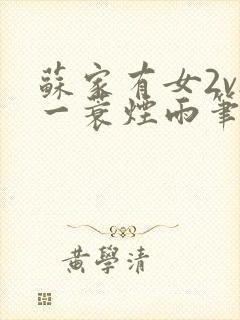 蘇家有女2v
一蓑煙雨筆
黃學清